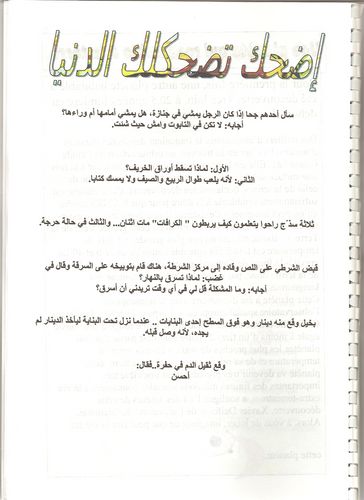 إضحك تضحكلك الدنيا
سأل أحدهم جحا إذا كان الرجل يمشي في جنازة، هل يمشي أمامها أم وراءها؟
أجابه: لا تكن في التابوت وامش حيث شئت.
الأول: لماذا تسقط أوراق الخريف؟
الثاني: لأنه يلعب طوال الربيع والصيف ولا يمسك كتابا.
ثلاثة سذج راحوا يتعلمون كيف يربطون " الكرافات" مات اثنان... والثالث في حالة حرجة.
قبض الشرطي على اللص وقاده إلى مركز الشرطة، هناك قام بتوبيخه على السرقة وقال في
غضب: لماذا تسرق بالنهار؟
أجابه: وما المشكلة قل لي في أي وقت تريدني أن أسرق؟
بخيل وقع منه دينار وهو فوق السطح إحدى البنايات .. عندما نزل تحت البناية ليأخذ الدينار لم
يجده، لأنه وصل قبله.
وقع ثقيل الدم في حفرة..فقال:
أحسن